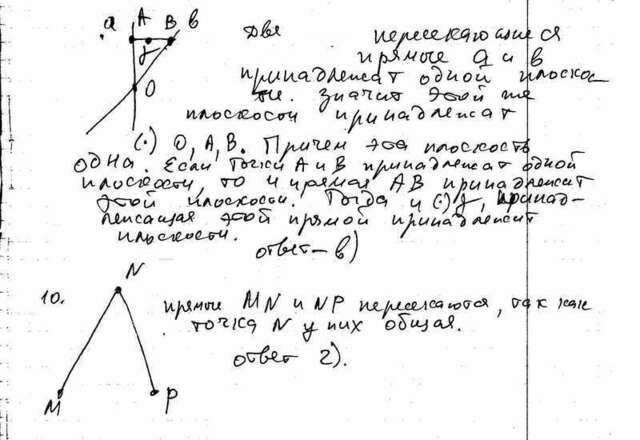 а А В в
γ
О
Две пересекающиеся
прямые а и в
принадлежат одной плоскос-
ти. Значит этой же
плоскости принадлежат
(·) О, А, В. Причем эта плоскость
одна. Если точки А и В принадлежат одной
плоскости, то и прямая АВ принадлежит
этой плоскости. Тогда и (·) γ, принад-
лежащая этой прямой принадлежит
плоскости.
ответ – в)
10.
N
M P
прямые MN и NP пересекаются, так как
точка N у них общая.
ответ 2).